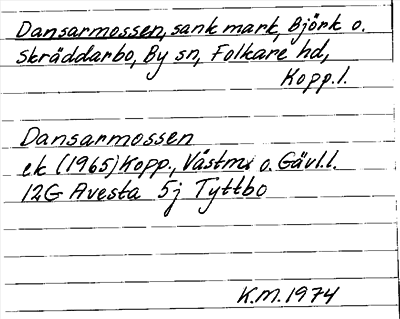 Dansarmossen, sank mark, Björk o.
Skräddarbo, By sn, Folkare hd,
Kopp.l.
Dansarmossen
ek (1965) Kopp., Västm. o. Gävl.l.
12G Avesta 5j Tyttbo
K.M. 1974